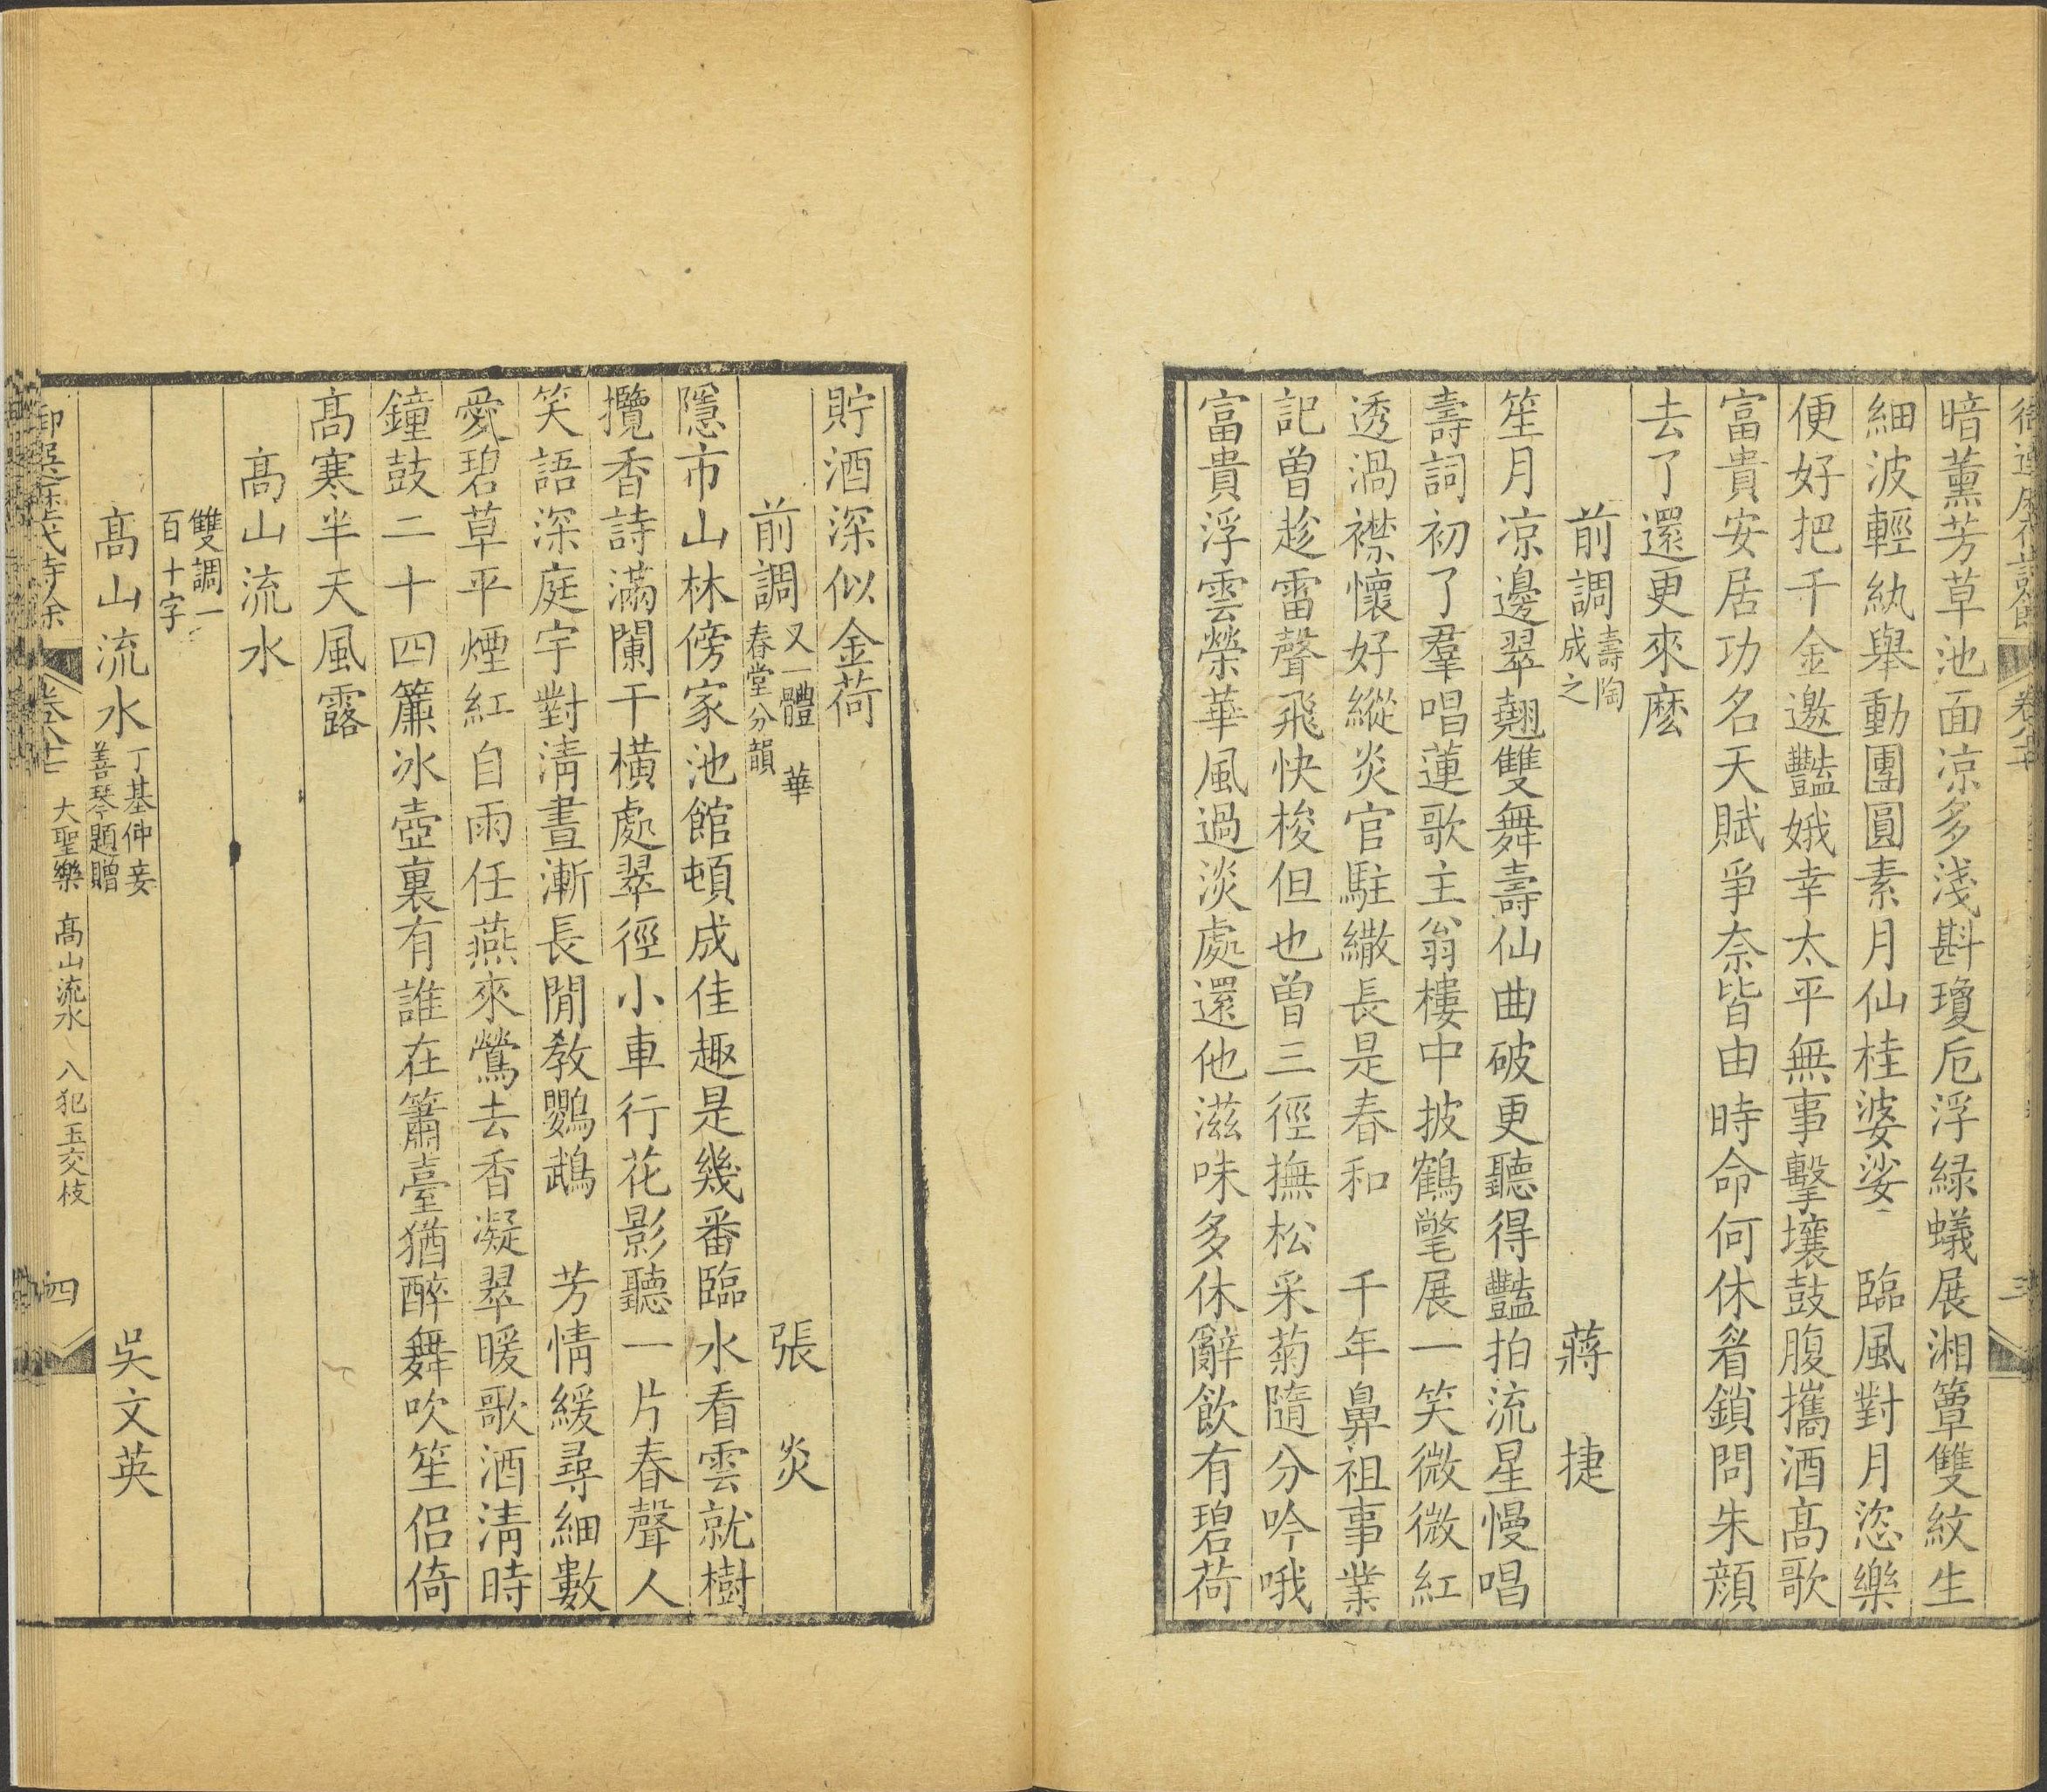 暗薰芳草池面凉多淺斟瓊卮浮緑蟻展湘簟雙紋生
細波輕紈舉動團圓素月仙桂婆娑　臨風對月恣樂
便好把千金邀豔娥幸太平無事擊壤鼓腹攜酒高歌
富貴安居功名天賦爭奈皆由時命何休眉鎖問朱顔
去了還更來麽
前調壽陶成之　蔣捷
笙月凉邊翠翹雙舞壽仙曲破更聽得豔拍流星慢唱
壽詞初了羣唱蓮歌主翁樓中披鶴氅展一笑微微紅
透渦襟懷好縱炎官駐繖長是春和　千年鼻祖事業
記曾趁雷聲飛快梭但也曾三徑撫松采菊隨分吟哦
富貴浮雲榮華風過淡處還他滋味多休辭飲有碧荷
貯酒深似金荷
前調又一體　華春堂分韻　張炎
隱市山林傍家池館頓成佳趣是幾番臨水看雲就樹
攬香詩滿闌干横處翠徑小車行花影聽一片春聲人
笑語深庭宇對清晝漸長閒教鸚鵡　芳情緩尋細數
愛碧草平煙紅自雨任燕來鶯去香凝翠暖歌酒清時
鐘鼓二十四簾冰壺裏有誰在簫臺猶醉舞吹笙侣倚
高寒半天風露
高山流水
雙調一百十字
高山流水丁基仲妾善琴題贈　吳文英
大聖樂　高山流水　八犯玉交枝　四